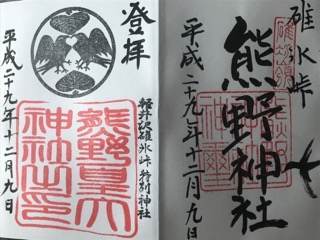 登拝
軽井沢碓氷峠特別神社
熊野皇大
神社之印
平成二十九年十二月九日
碓氷峠
熊野神社
平成二十九年十二月九日